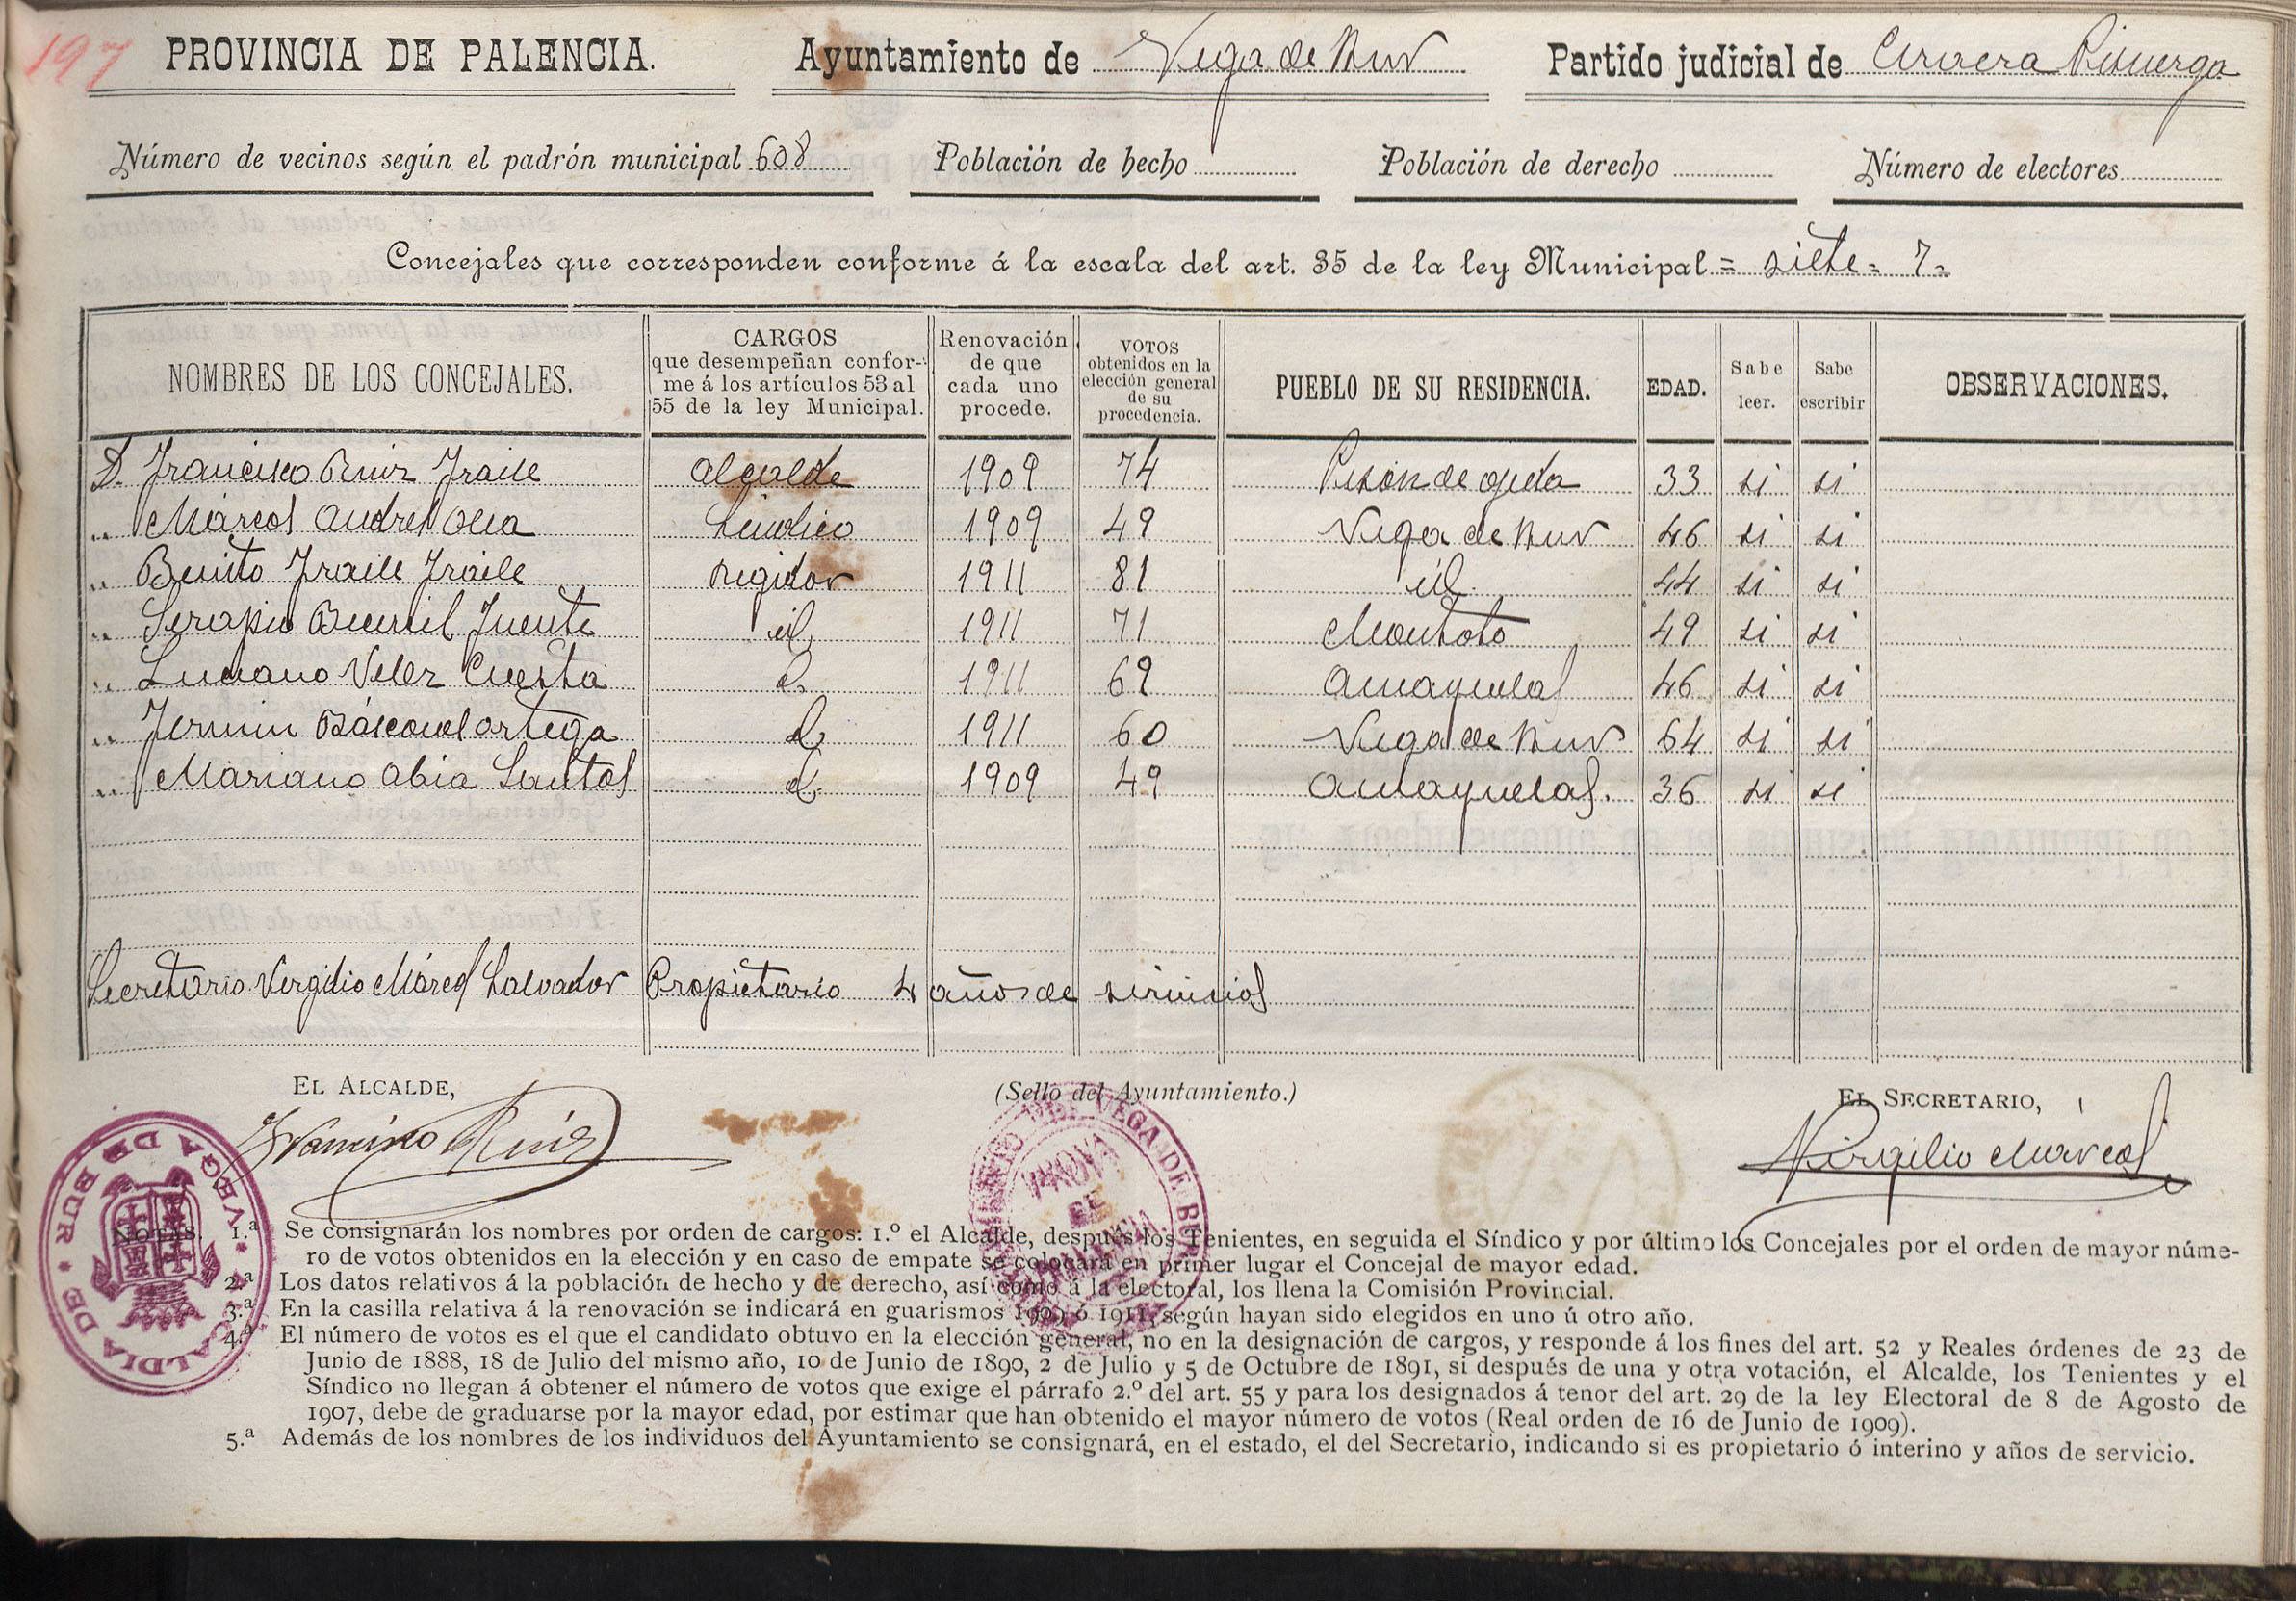 197 PROVINCIA DE PALENCIA. Ayuntamiento de Vega de Bur Partido judicial de Cervera Pisuerga
Número de vecinos según el padrón municipal 608 Población de hecho Población de derecho Número de electores
Concejales que corresponden conforme á la escala del art. 35 de la ley Municipal = siete = 7 =
NOMBRES DE LOS CONCEJALES. CARGOS que desempeñan confor- me á los artículos 53 al 55 de la ley Municipal. Renovación de que cada uno procede. VOTOS obtenidos en la elección general de su procedencia. PUEBLO DE SU RESIDENCIA. EDAD. Sabe leer. Sabe escribir OBSERVACIONES.
D. Francisco Ruiz Fraile Alcalde 1909 74 Pisón de Ojeda 33 si si
" Márcos Andres Olea Sindico 1909 49 Vega de Bur 46 si si
" Benito Fraile Fraile Regidor 1911 81 id. 44 si si
" Serapio Fuente id. 1911 71 Montoto 49 si si
" Luciano Velez Cuesta id. 1911 69 Amayuelas 46 si si
" Fermin Báscones Ortega id. 1911 60 Vega de Bur 64 si si
" Mariano Abia Santos id. 1909 49 Amayuelas. 36 si si
Secretario Vergilio Márcos Salvador Propietario 4 años de servicios
EL ALCALDE, (Sello del Ayuntamiento.) EL SECRETARIO,
Francisco Ruiz Virgilio Marcos
ALCALDIA DE * VEGA DE BUR *
AYUNTAMIENTO DE VEGA DE BUR
PROVA DE PALENCIA
NOTAS. 1.ª Se consignarán los nombres por orden de cargos: 1.º el Alcalde, después los Tenientes, en seguida el Síndico y por último los Concejales por el orden de mayor núme-
ro de votos obtenidos en la elección y en caso de empate se colocará en primer lugar el Concejal de mayor edad.
2.ª Los datos relativos á la población de hecho y de derecho, así como á la electoral, los llena la Comisión Provincial.
3.ª En la casilla relativa á la renovación se indicará en guarismos 1909 ó 1911, según hayan sido elegidos en uno ú otro año.
4.ª El número de votos es el que el candidato obtuvo en la elección general, no en la designación de cargos, y responde á los fines del art. 52 y Reales órdenes de 23 de
Junio de 1888, 18 de Julio del mismo año, 10 de Junio de 1890, 2 de Julio y 5 de Octubre de 1891, si después de una y otra votación, el Alcalde, los Tenientes y el
Síndico no llegan á obtener el número de votos que exige el párrafo 2.º del art. 55 y para los designados á tenor del art. 29 de la ley Electoral de 8 de Agosto de
1907, debe de graduarse por la mayor edad, por estimar que han obtenido el mayor número de votos (Real orden de 16 de Junio de 1909).
5.ª Además de los nombres de los individuos del Ayuntamiento se consignará, en el estado, el del Secretario, indicando si es propietario ó interino y años de servicio.